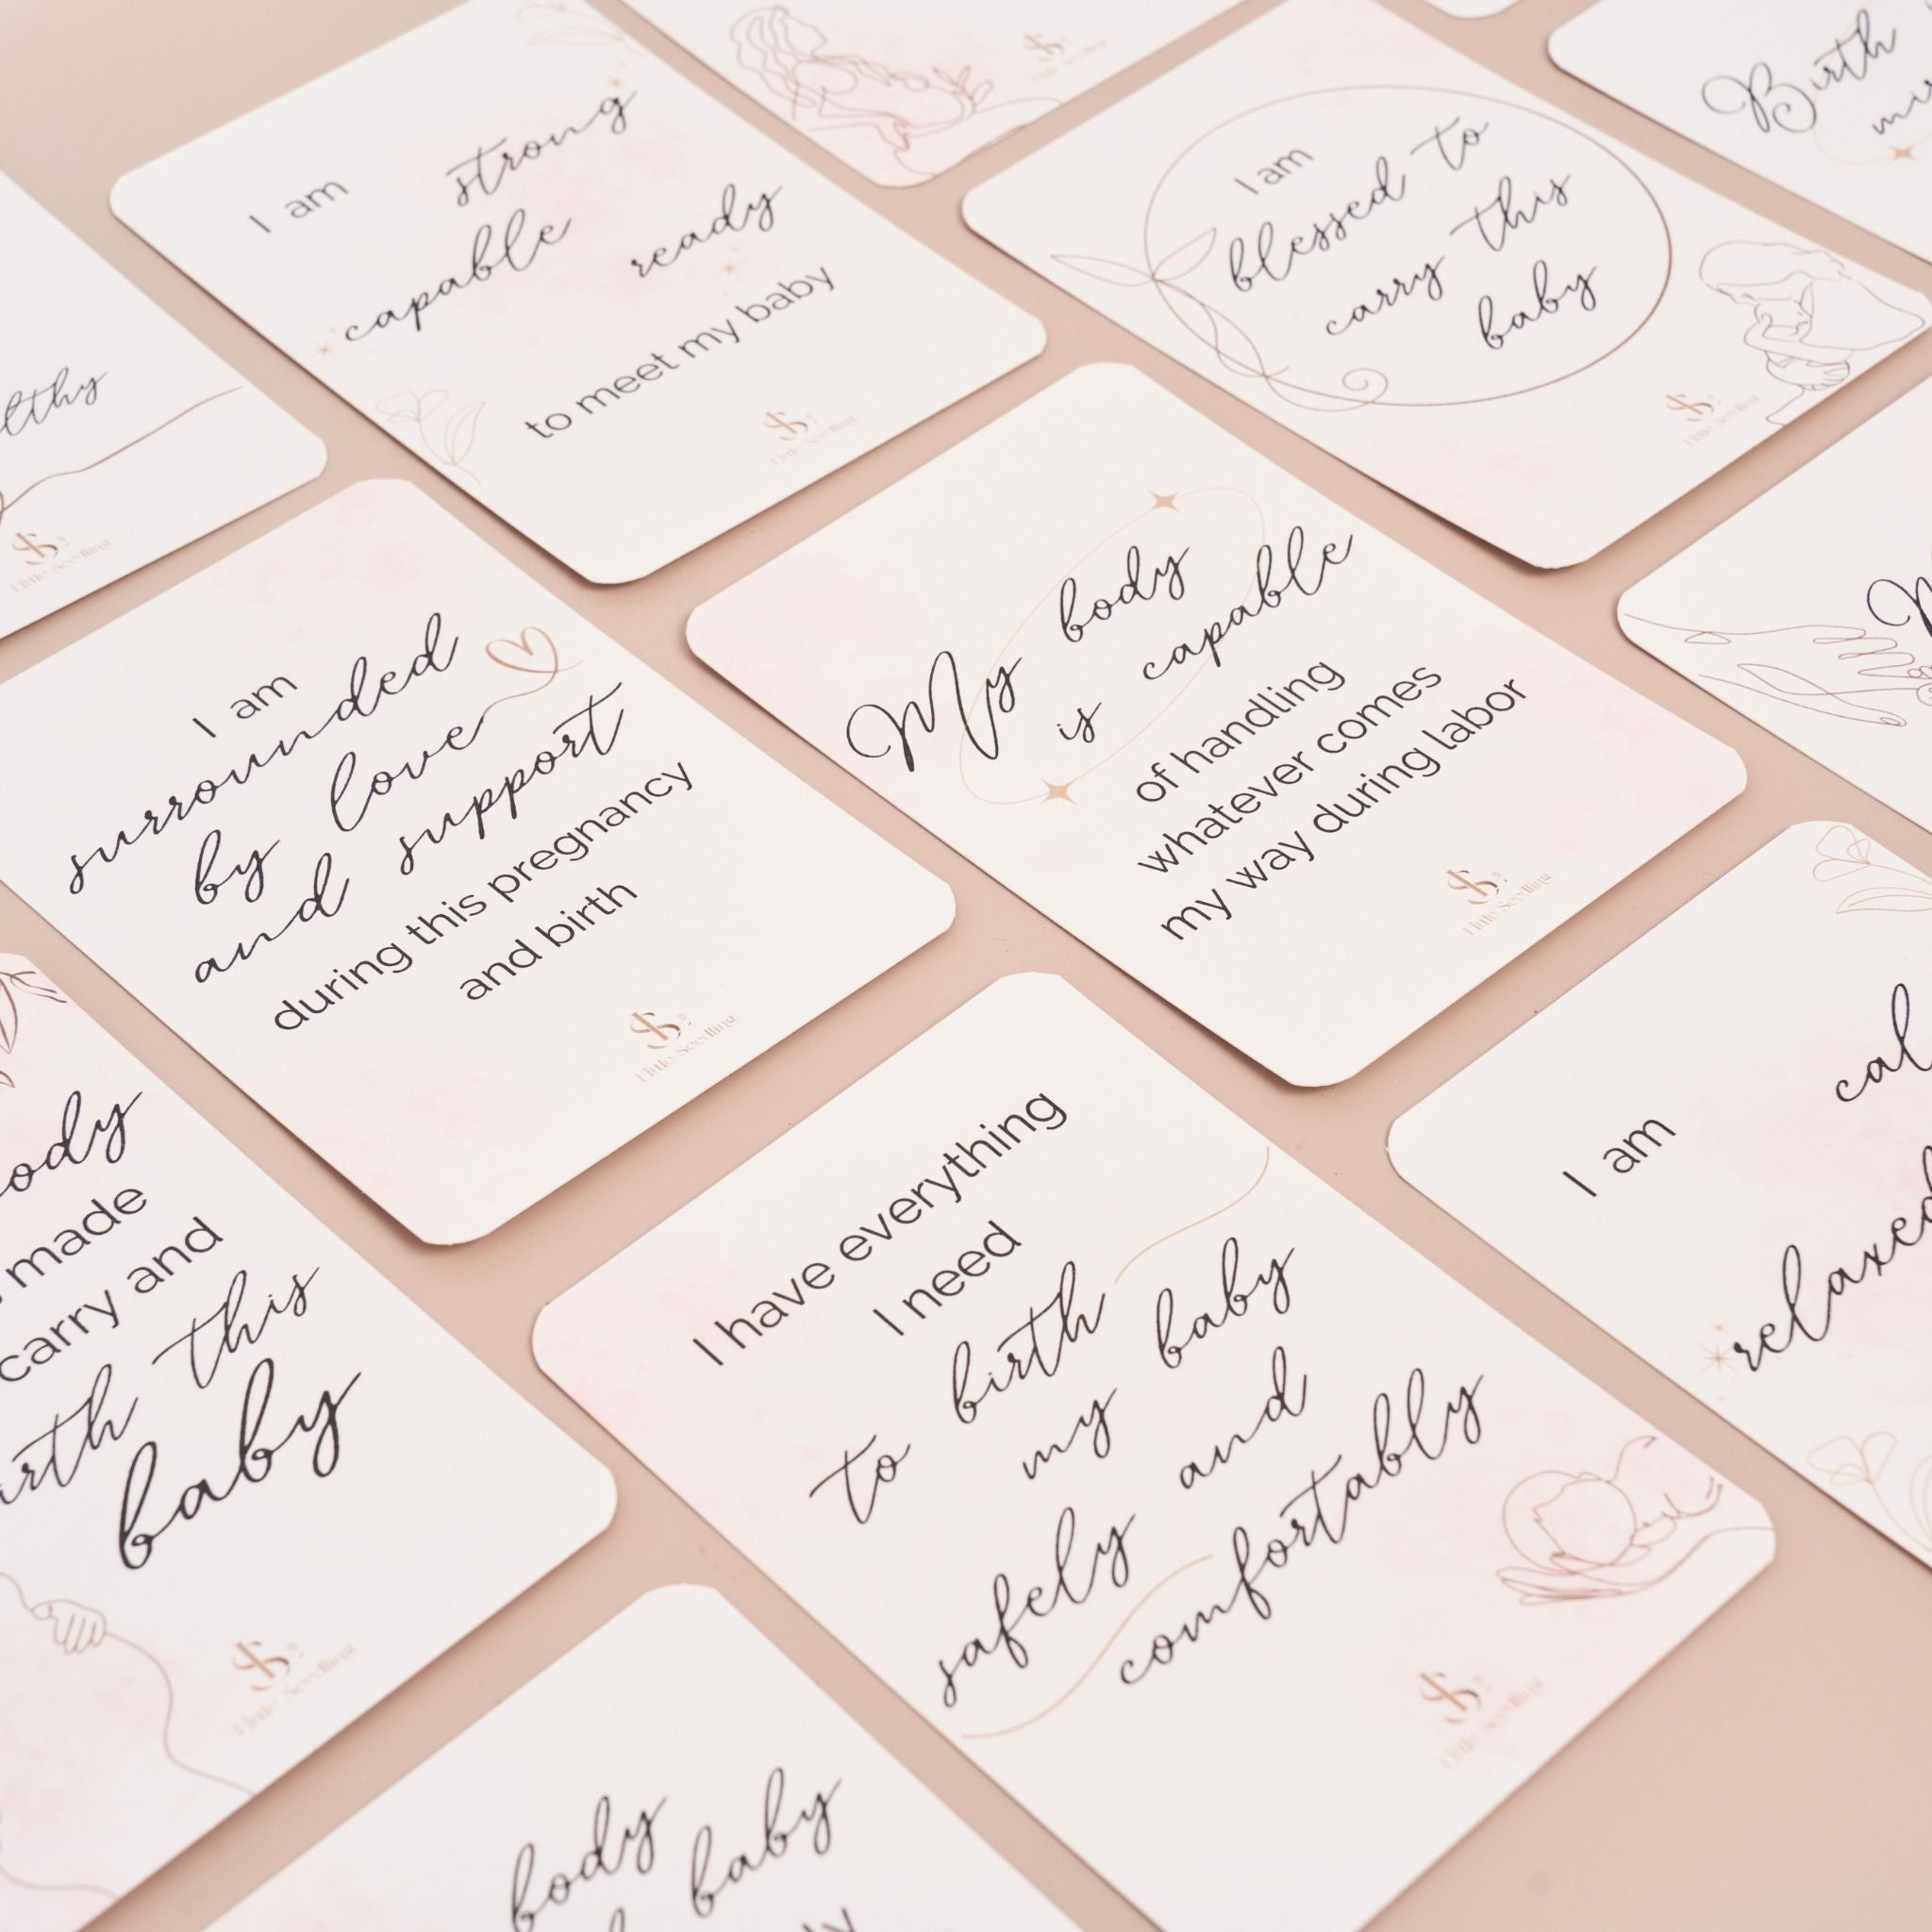 I am strong
capable ready
to meet my baby
Little Seedling
I am
blessed to
carry this
baby
Little Seedling
Birth
Little Seedling
I am
surrounded
by love
and support
during this pregnancy
and birth
Little Seedling
My body
is capable
of handling
whatever comes
my way during labor
Little Seedling
made
carry and
this
baby
Little Seedling
I have everything
I need
to birth
my baby
safely and
comfortably
Little Seedling
I am
relaxed
body
baby